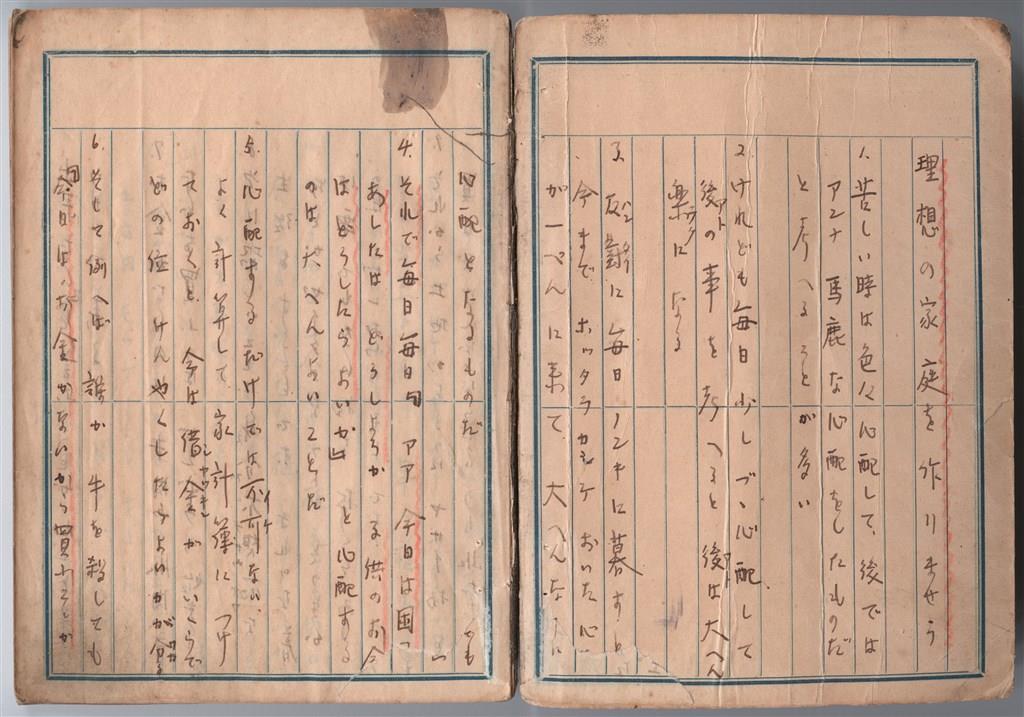 理想の家庭を作りませう
1. 苦しい時は色々心配して、後では
アンナ馬鹿な心配をしたものだ
と考へることが多い
2. けれども毎日少しづゝ心配して
後の事を考へると後は大へん
アト
楽になる
ラク
3. 反對に毎日ノンキに暮すと
ハンタイ
今まで ホッタラカシテおいた心
が一ぺんに来て、大へんな
心配となるものだ
4. それで毎日毎日 アア今日は困つ
あしたはどうしようか 子供のお金
はどうしたらよいか」と心配する
のは大へんよいことだ
5. 心配するだけでは不可ない、
イケ
よく計算して、家計簿につけ
ておくと、今は借金がいくらで
シャッキン
どの位けんやくしたらよいかが分る
ワカ
6. そして例へば誰か牛を殺しても
今日は、お金がないから買ふことが